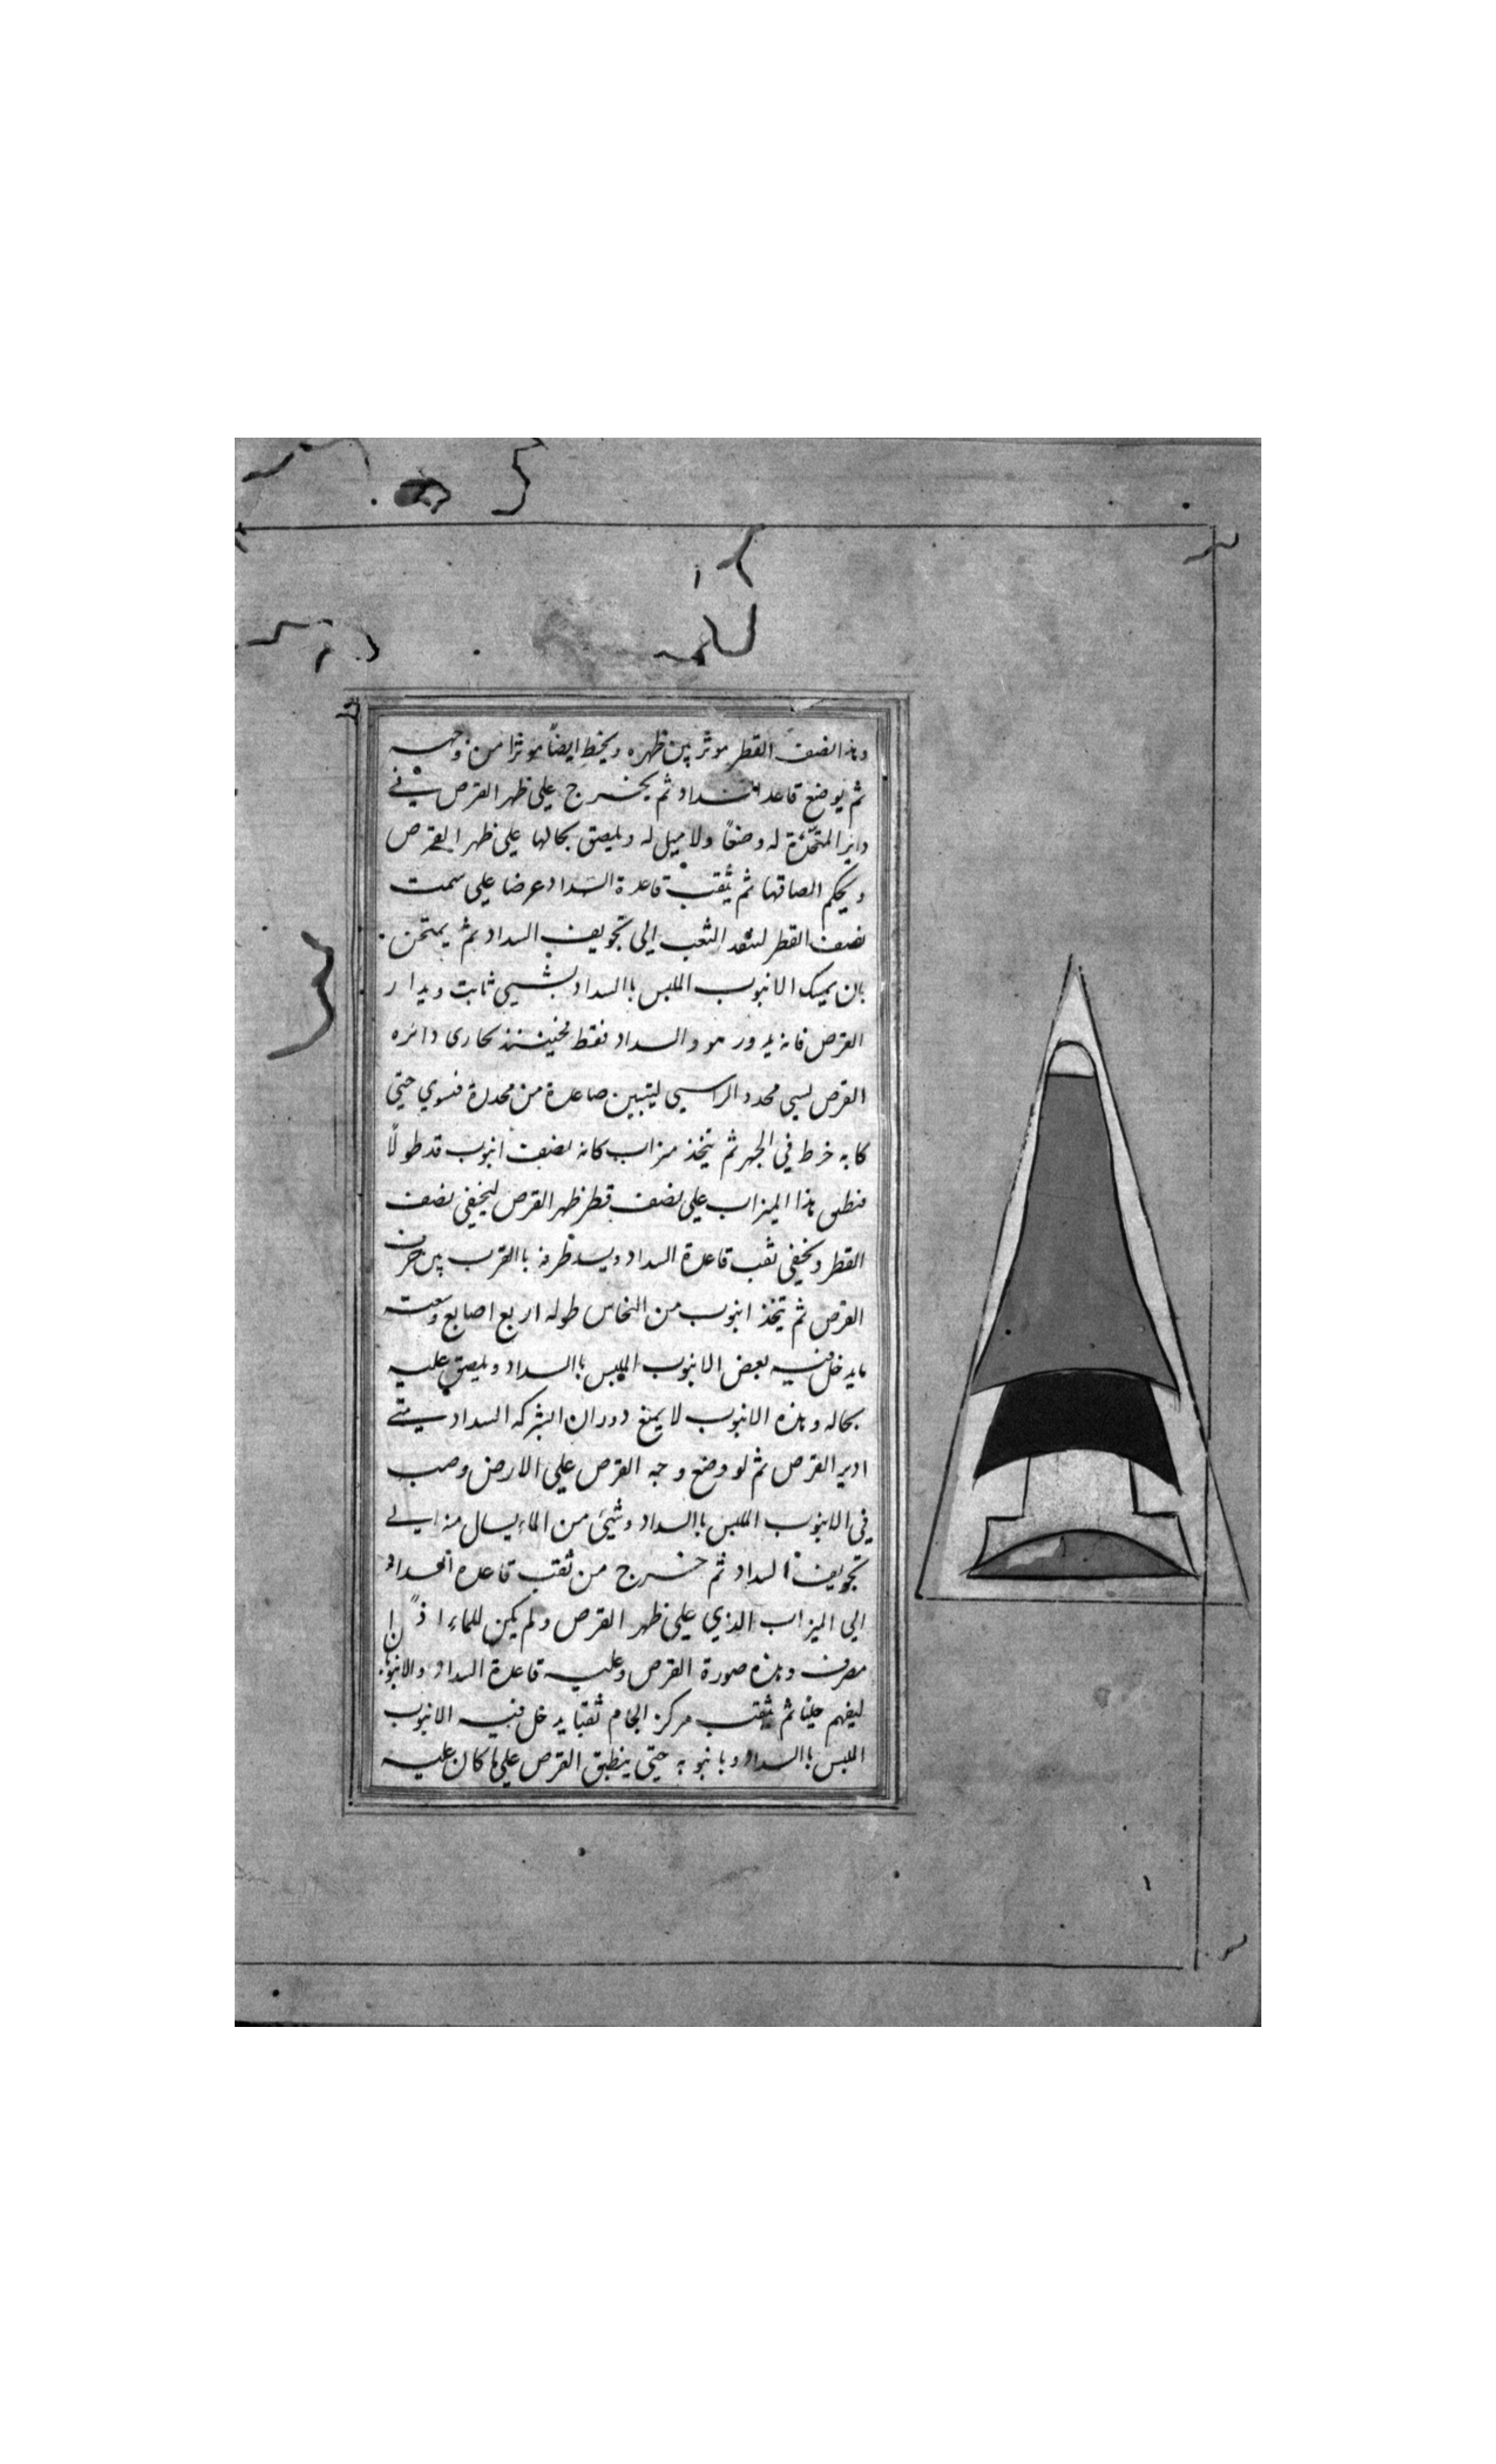 وهذا نصف القطر موثر بين ظهره ويخط ايضاً موثرا من وجهه
ثم يوضع قاعدة السداد ثم يخرج على ظهر القرص في
داير المتخذة له وضعًا ولا ميل له ويلصق بحالها على ظهر القرص
ويحكم الصاقها ثم يثقب قاعدة السداد عرضا على سمت
نصف القطر لينفذ الثعب الى تجويف السداد ثم يمتحن
بان يمسك الانبوب الملبس باالسداد بشيى ثابت ويدار
القرص فانه يدور هو والسداد فقط فحينئذ محارى دائره
القرص لسى محدد الراسى ليتبين صاعدة من محدرة فسوي حتى
كانه خرط في الجهر ثم يتخذ ميزاب كانه نصف انبوب قد طولًا
فنطبق هذا الميزاب على نصف قطر ظهر القرص ليخفي نصف
القطر ويخفي ثقب قاعدة السداد ويسد طرفه باالقرب من حرف
القرص ثم يتخذ انبوب من النحاس طوله اربع اصابع وسعته
مايدخل فيه بعض الانبوب الملبس باالسداد ويلصق عليه
بحاله وهذه الانبوب لا يمنع دوران الشركه السداد متى
ادير القرص ثم لو وضع وجه القرص على الارض وصب
في الانبوب الملبس باالسداد وشيئ من الماء يسال منه الى
تجويف السداد ثم خرج من ثقب قاعدة السداد
الى الميزاب الذي على ظهر القرص ولم يكن للماء اذًا
مصرف وهذه صورة القرص وعليه قاعدة السداد والانبوب
ليفهم جليا ثم يثقب مركز الجام ثقبا يدخل فيه الانبوب
الملبس باالسداد وبانبوبه حتى ينطبق القرص على ما كان عليه